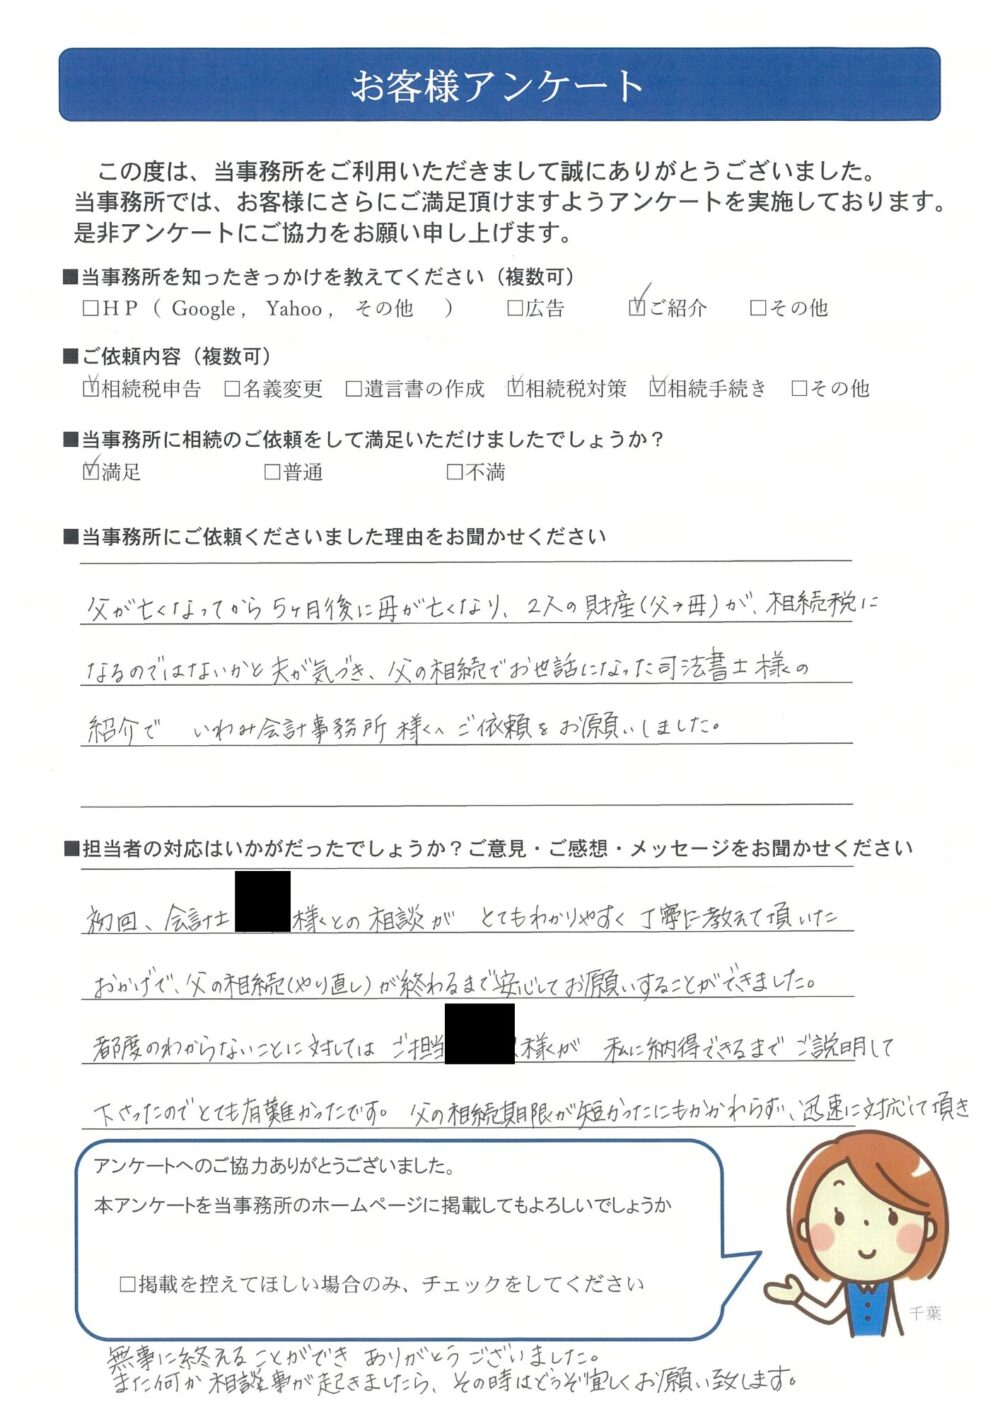 お客様アンケート
この度は、当事務所をご利用いただきまして誠にありがとうございました。
当事務所では、お客様にさらにご満足頂けますようアンケートを実施しております。
是非アンケートにご協力をお願い申し上げます。
■当事務所を知ったきっかけを教えてください（複数可）
□ＨＰ（ Google， Yahoo， その他　） □広告 ☑ご紹介 □その他
■ご依頼内容（複数可）
☑相続税申告 □名義変更 □遺言書の作成 ☑相続税対策 ☑相続手続き □その他
■当事務所に相続のご依頼をして満足いただけましたでしょうか？
☑満足 □普通 □不満
■当事務所にご依頼くださいました理由をお聞かせください
父が亡くなってから5ヶ月後に母が亡くなり、2人の財産(父→母)が、相続税に
なるのではないかと夫が気づき、父の相続でお世話になった司法書士様の
紹介で　いわみ会計事務所 様へ ご依頼をお願いしました。
■担当者の対応はいかがだったでしょうか？ご意見・ご感想・メッセージをお聞かせください
初回、会計士 様との相談が とてもわかりやすく丁寧に教えて頂いた
おかげで、父の相続(やり直し)が終わるまで安心してお願いすることができました。
都度のわからないことに対しては ご担当 様が 私に納得できるまでご説明して
下さったのでとても有難かったです。父の相続期限が短かったにもかかわらず、迅速に対応して頂き
アンケートへのご協力ありがとうございました。
本アンケートを当事務所のホームページに掲載してもよろしいでしょうか
□掲載を控えてほしい場合のみ、チェックをしてください
千葉
無事に終えることができ ありがとうございました。
また何か相談事が起きましたら、その時はどうぞ宜しくお願い致します。